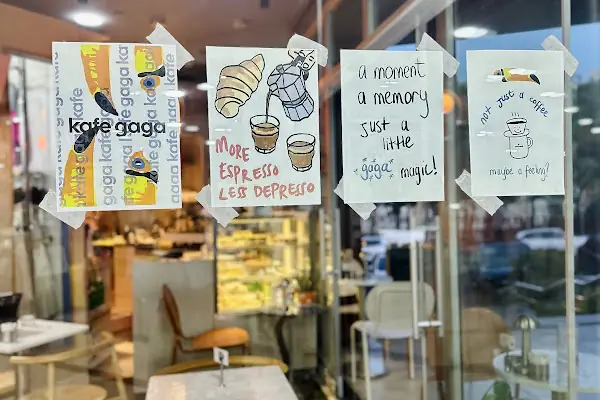 kafe gaga
gaga kafe
MORE
ESPRESSO
LESS DEPRESSO
a moment
a memory
just a
little
gaga magic!
not just a coffee
maybe a feeling?